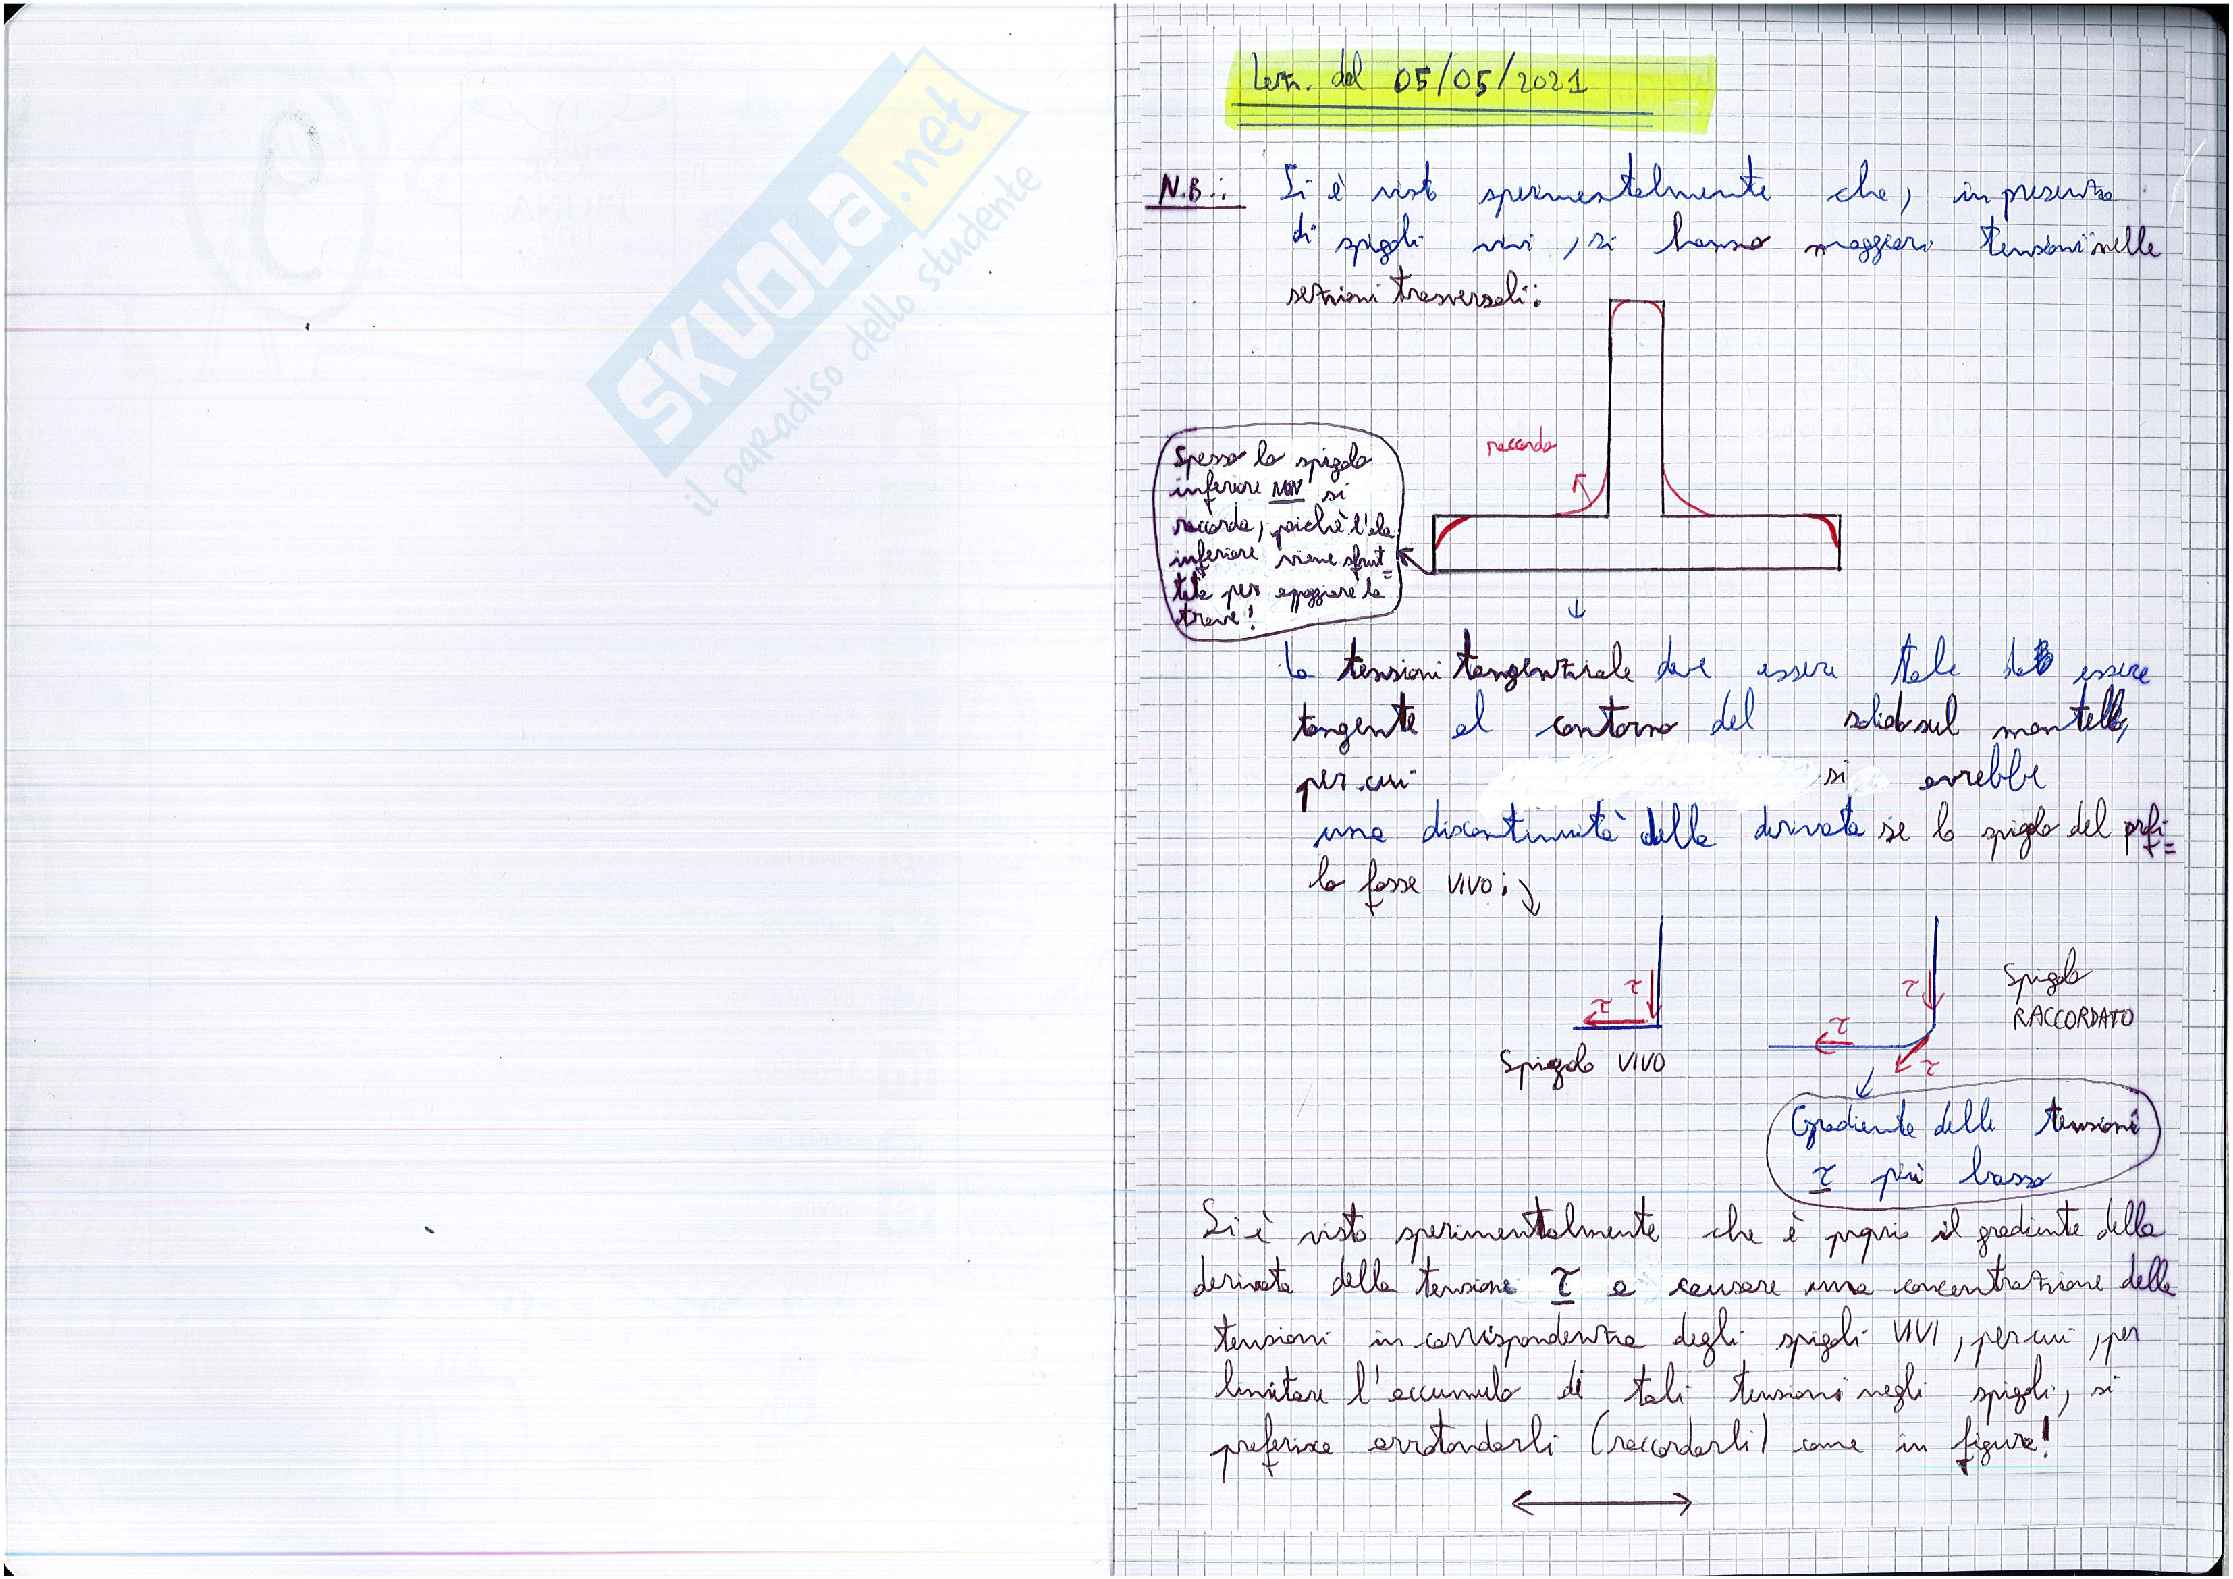 SKUOLA.net
il paradiso dello studente
Lez. del 05/05/2021
N.B.: Si è visto sperimentalmente che, in presenza
di spigoli vivi, si hanno maggiori tensioni nelle
sezioni trasversali:
raccordo
Spesso lo spigolo
inferiore NON si
raccorda, poichè l'ala
inferiore viene sfrut=
tata per appoggiare la
trave!
la tensioni tangenziale deve essere tale da essere
tangente al contorno del solido sul mantello,
per cui si avrebbe
una discontinuità della derivata se lo spigolo del profi=
lo fosse VIVO:
τ τ
Spigolo VIVO
τ τ τ
Spigolo
RACCORDATO
Gradiente delle tensioni
τ più basso
Si è visto sperimentalmente che è proprio il gradiente della
derivata della tensione τ a causare una concentrazione delle
tensioni in corrispondenza degli spigoli VIVI, per cui, per
limitare l'accumulo di tali tensioni negli spigoli, si
preferisce arrotondarli (raccordarli) come in figura!